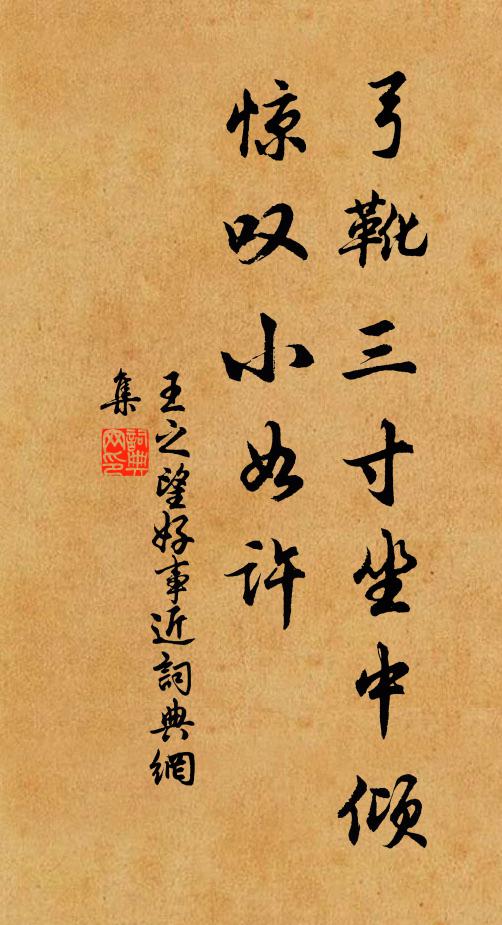 弓靴三寸坐中倾
惊叹小如许
王之望好事近詞典網
集
詞典网印